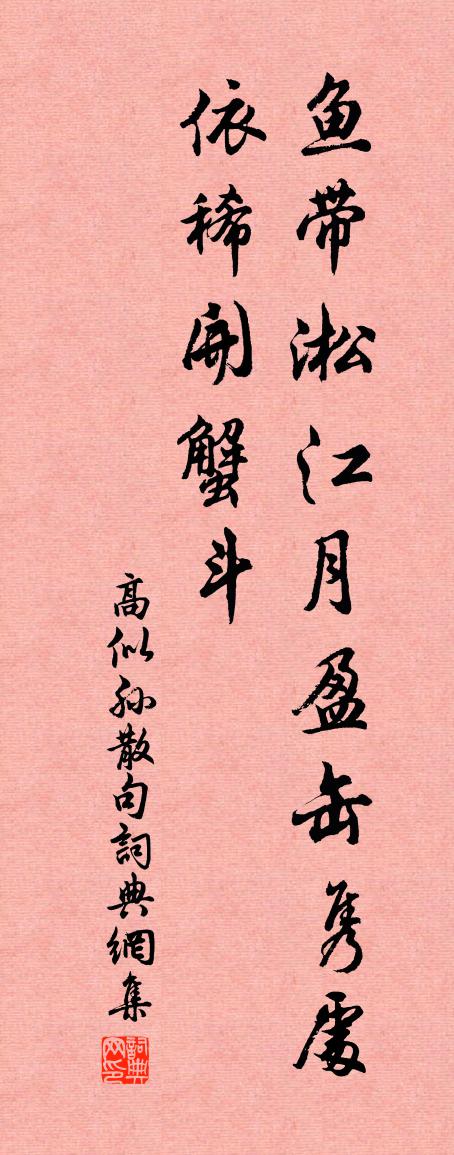 鱼带淞江月盈缶隽處
依稀開蟹斗
高似孙散句詞典網集
詞典网印